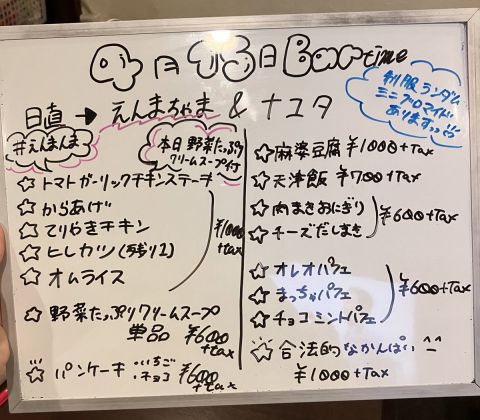 4月13日Bartime
日直→えんまちゃま&ナユタ
制服ランダム
ミニブロマイド
ありますっっ
#えんまんま
本日野菜たっぷり
クリームスープ付
☆トマトガーリックチキンステーキ
☆からあげ
☆てりやきチキン
☆ヒレカツ(残り1)
☆オムライス
¥1000
+tax
☆野菜たっぷりクリームスープ
単品 ¥600
+tax
☆パンケーキ・いちご
・チョコ ¥600
+tax
☆麻婆豆腐¥1000+Tax
☆天津飯 ¥700+Tax
☆肉まきおにぎり
☆チーズだしまき
¥600+Tax
☆オレオパフェ
☆まっちゃパフェ
☆チョコミントパフェ
¥600+Tax
☆合法的なかんぱい^^
¥1000+Tax